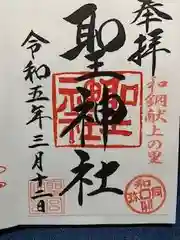 奉拝
和銅献上の里
聖神社
令和五年三月十二日